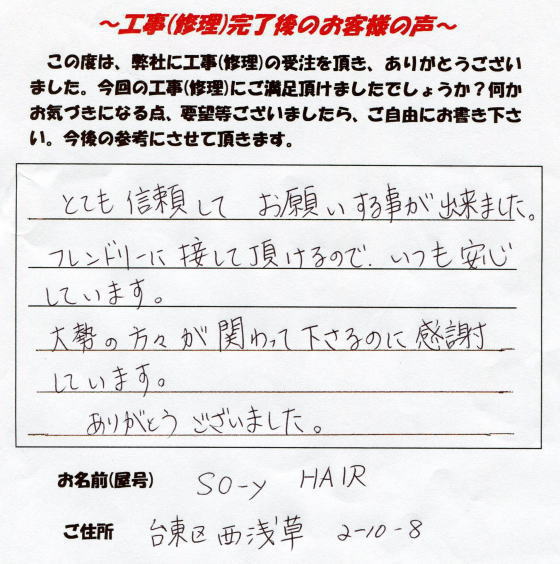 ～工事(修理)完了後のお客様の声～
この度は、弊社に工事(修理)の受注を頂き、ありがとうござい
ました。今回の工事(修理)にご満足頂けましたでしょうか？何か
お気づきになる点、要望等ございましたら、ご自由にお書き下さ
い。今後の参考にさせて頂きます。
とても信頼して お願いする事が出来ました。
フレンドリーに接して頂けるので、いつも安心
しています。
大勢の方々が関わって下さるのに感謝
しています。
ありがとうございました。
お名前(屋号) SO-y HAIR
ご住所 台東区西浅草 2-10-8